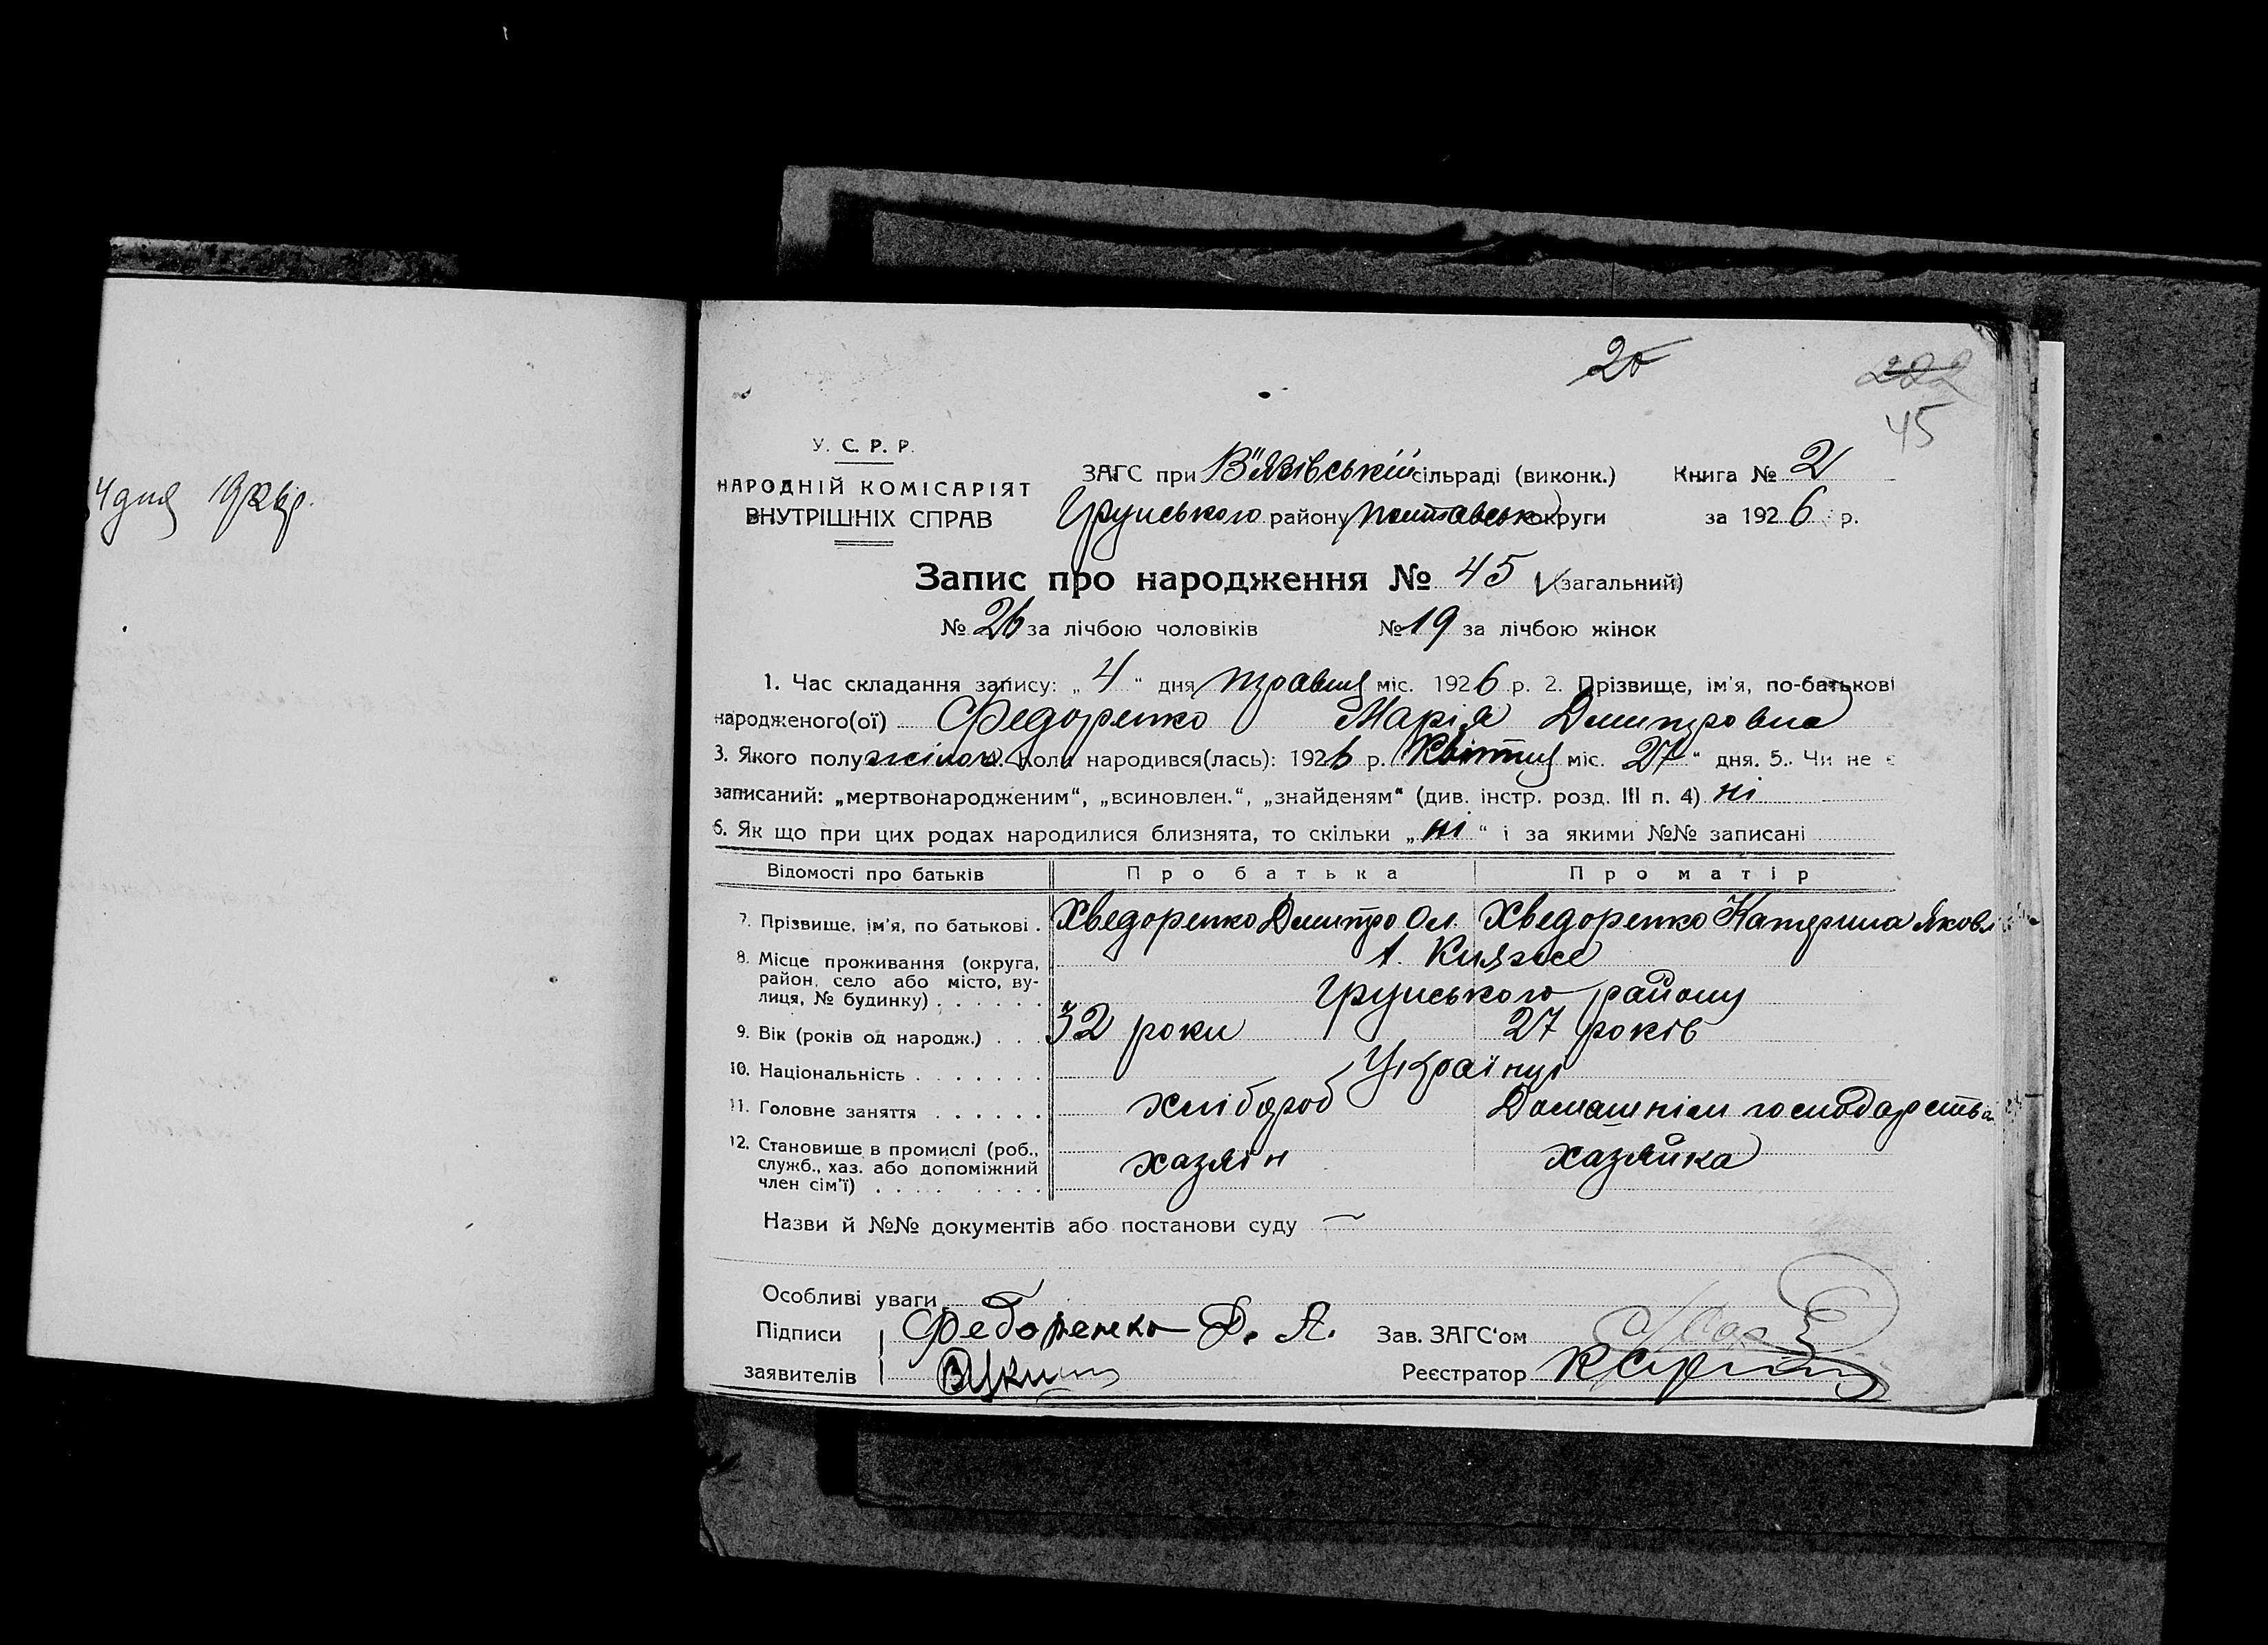 20
222
45
У. С. Р. Р.
НАРОДНІЙ КОМІСАРІЯТ
ВНУТРІШНІХ СПРАВ
ЗАГС при В'язівській сільраді (виконк.) Книга № 2
Грунського району Полтавськ округи за 1926 р.
4 дня 1926р.
Запис про народження № 45 (загальний)
№ 26 за лічбою чоловіків № 19 за лічбою жінок
1. Час складання запису: „4“ дня травня міс. 1926 р. 2. Прізвище, ім'я, по-батькові
народженого(ої) Федоренко Марія Дмитровна
3. Якого полу жіноч. коли народився(лась): 1926 р. Квітня міс. 27“ дня. 5. Чи не є
записаний: „мертвонародженим“, „всиновлен.“, „знайденям“ (див. інстр. розд. III п. 4) ні
6. Як що при цих родах народилися близнята, то скільки „ні“ і за якими №№ записані
Відомості про батьків Про батька Про матір
7. Прізвище, ім'я, по батькові . Хведоренко Дмитро Ол. Хведоренко Катерина Яковл
8. Місце проживання (округа, Княже
район, село або місто, ву-
лиця, № будинку) . . . . . . Грунського району
9. Вік (років од народж.) . . . 32 роки 27 років
10. Національність . . . . . . . Українці
11. Головне заняття . . . . . . хлібороб Домашнім господарства
12. Становище в промислі (роб., хазяін хазяйка
служб., хаз. або допоміжний
член сім'ї) . . . . . . . .
Назви й №№ документів або постанови суду —
Особливі уваги
Підписи Федоренко Д. А. Зав. ЗАГС'ом
заявителів Реєстратор